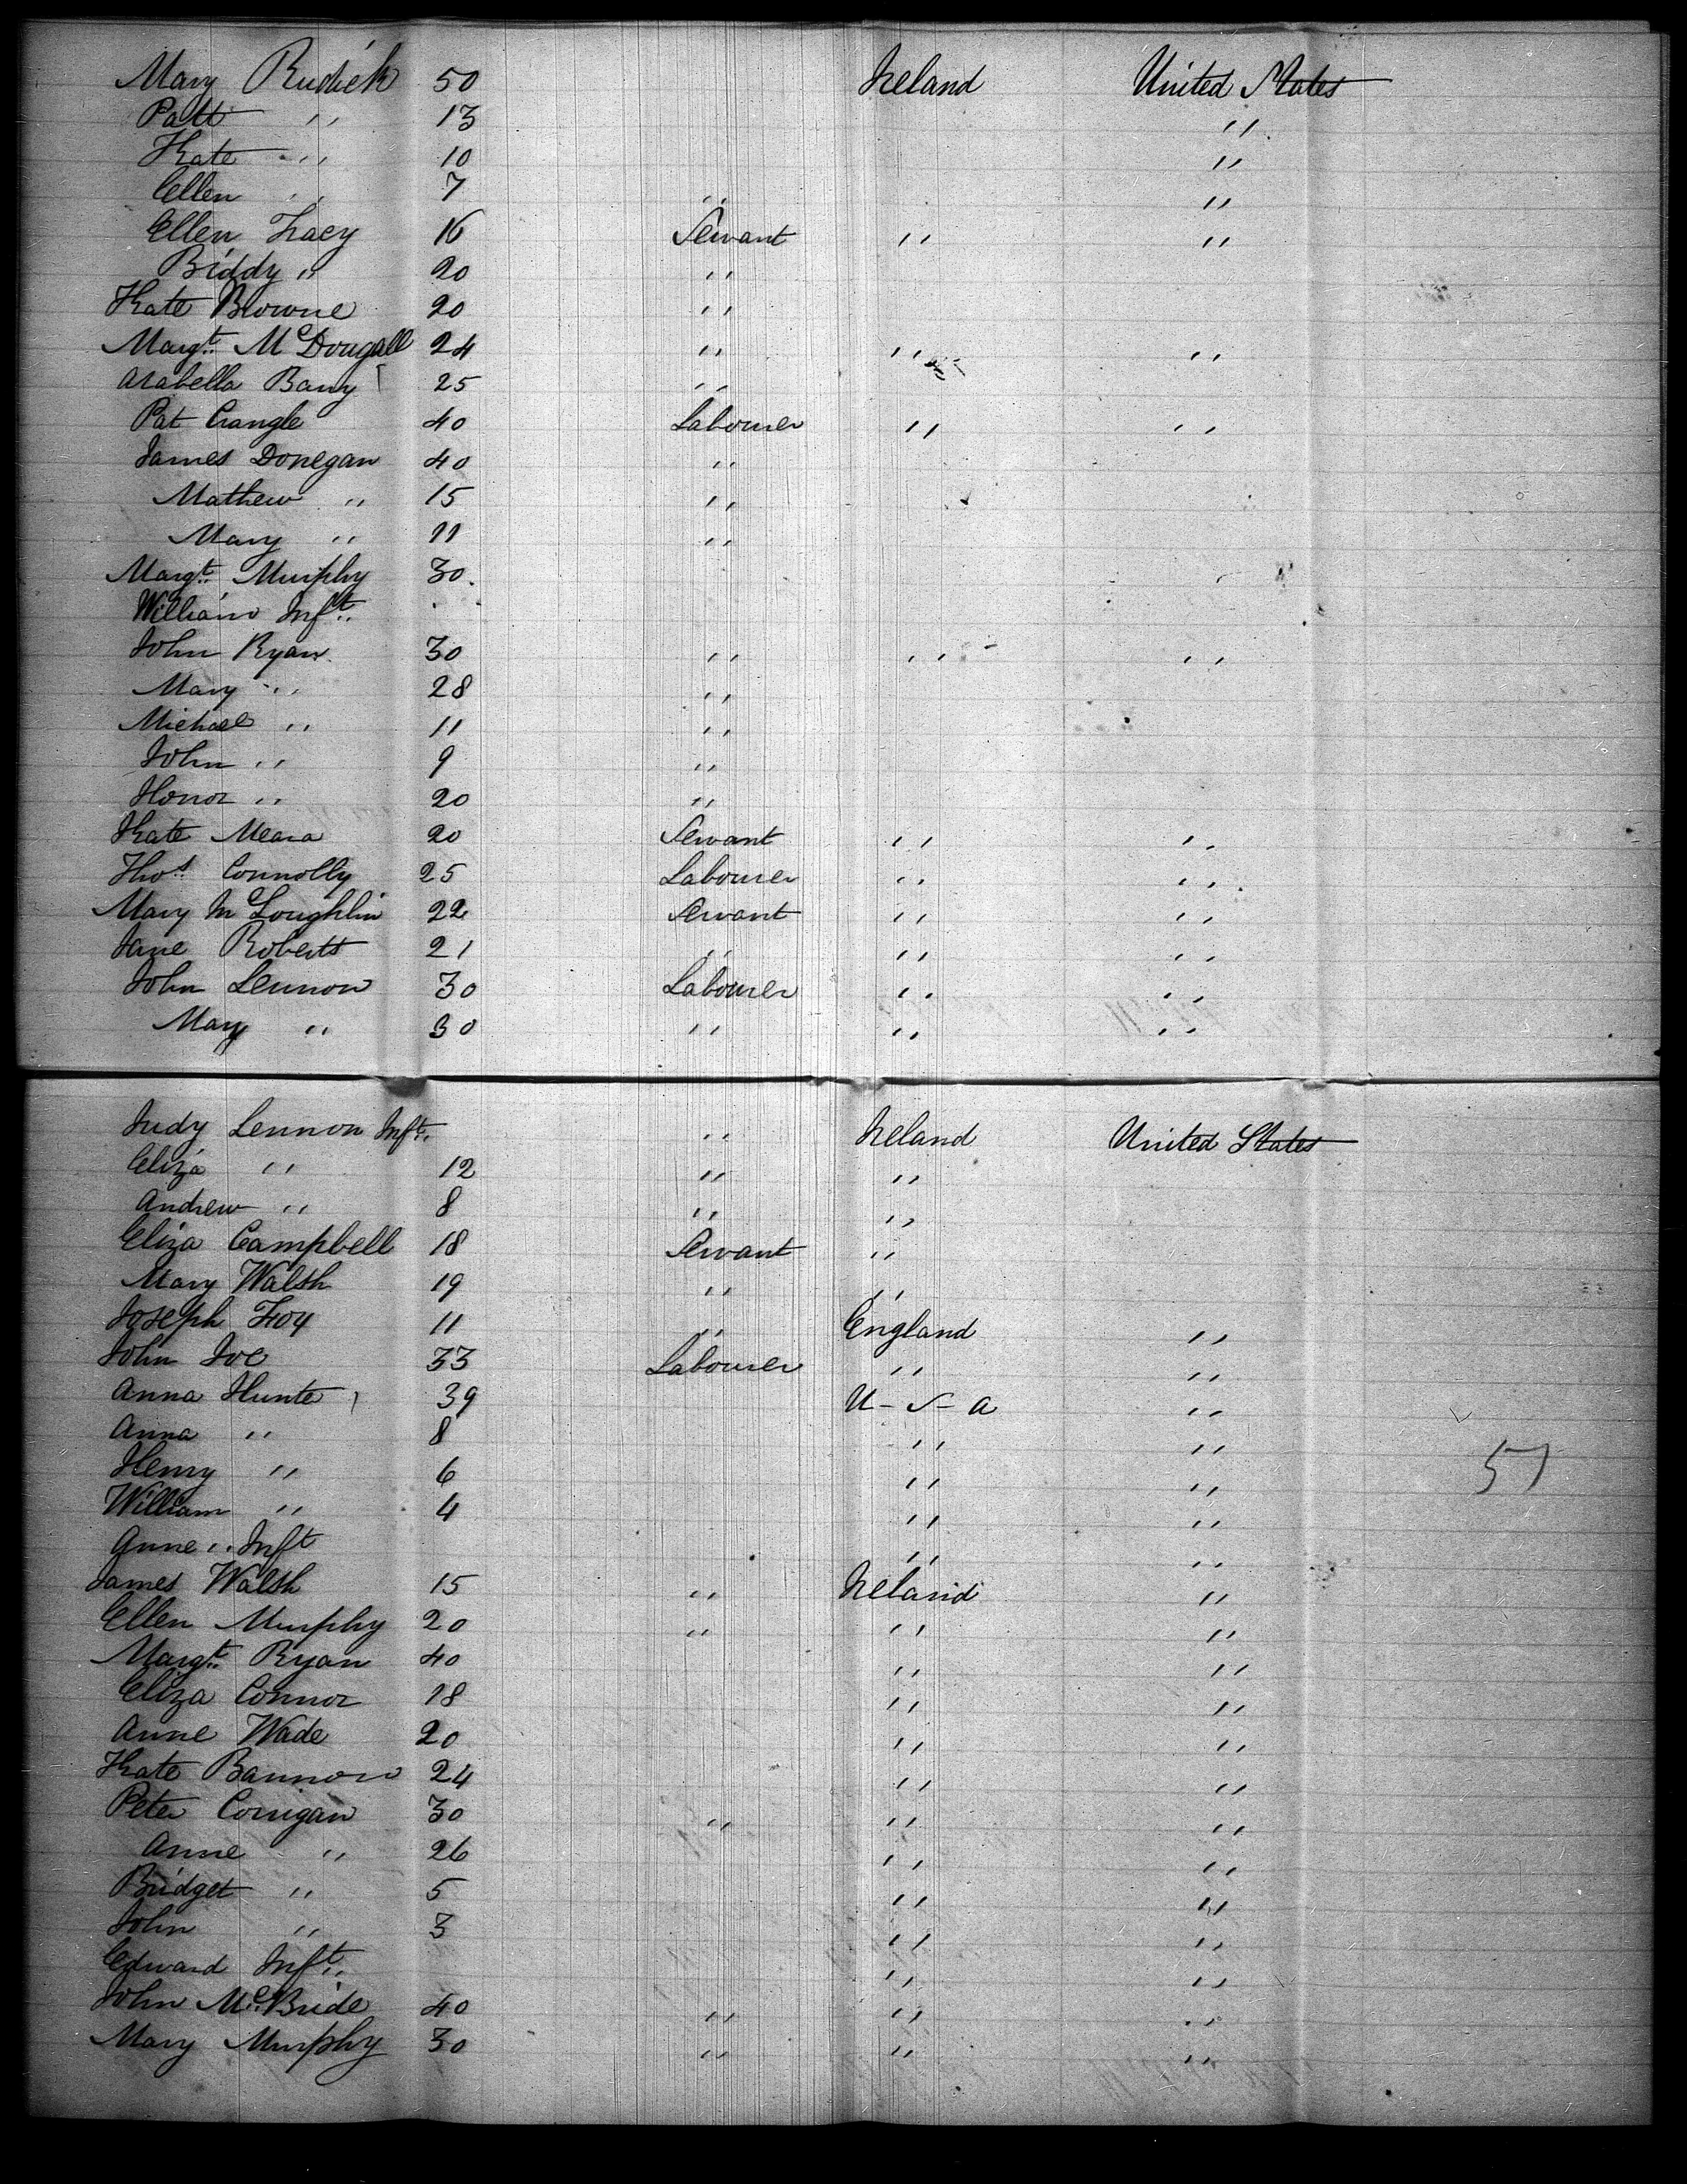 Mary Rudick 50 Ireland United States
Patt " 13 "
Kate " 10 "
Ellen " 7 " "
Ellen Tracy 16 Servant " "
Biddy " 20 "
Kate Browne 20 "
Margt. McDougall 24 " " "
Arabella Barry 25 "
Pat Crangle 40 Labourer " "
James Donegan 40 "
Mathew " 15 "
Mary " 11 "
Margt. Murphy 30
William Inft.
John Ryan 30 " " "
Mary " 28 "
Michael " 11 "
John " 9 "
Honor " 20 "
Kate Meara 20 Servant " "
Thos. Connolly 25 Labourer " "
Mary McLoughlin 22 Servant " "
Jane Roberts 21 " " "
John Lennon 30 Labourer " "
Mary " 30 " " "
Judy Lennon Inft. " Ireland United States
Eliza " 12 " "
Andrew " 8 " "
Eliza Campbell 18 Servant "
Mary Walsh 19 " "
Joseph Foy 11 " England "
John Joe 33 Labourer " "
Anna Hunter 39 U-S-A "
Anna " 8 " "
Henry " 6 " "
William " 4 " "
Anne " Inft " "
James Walsh 15 " Ireland "
Ellen Murphy 20 " " "
Margt. Ryan 40 " "
Eliza Connor 18 " "
Anne Wade 20 " "
Kate Bannon 24 " "
Peter Corrigan 30 " " "
Anne " 26 " "
Bridget " 5 " "
John " 3 " "
Edward Inft. " "
John McBride 40 " " "
Mary Murphy 30 " " "
51